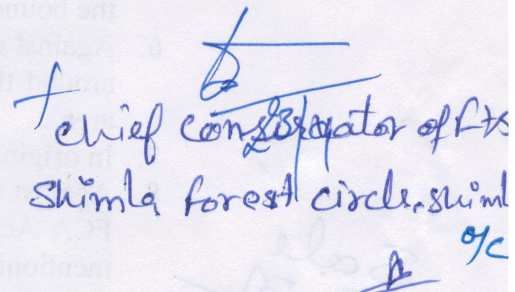 chief conservator of Fts
Shimla forest circle, shiml
o/c